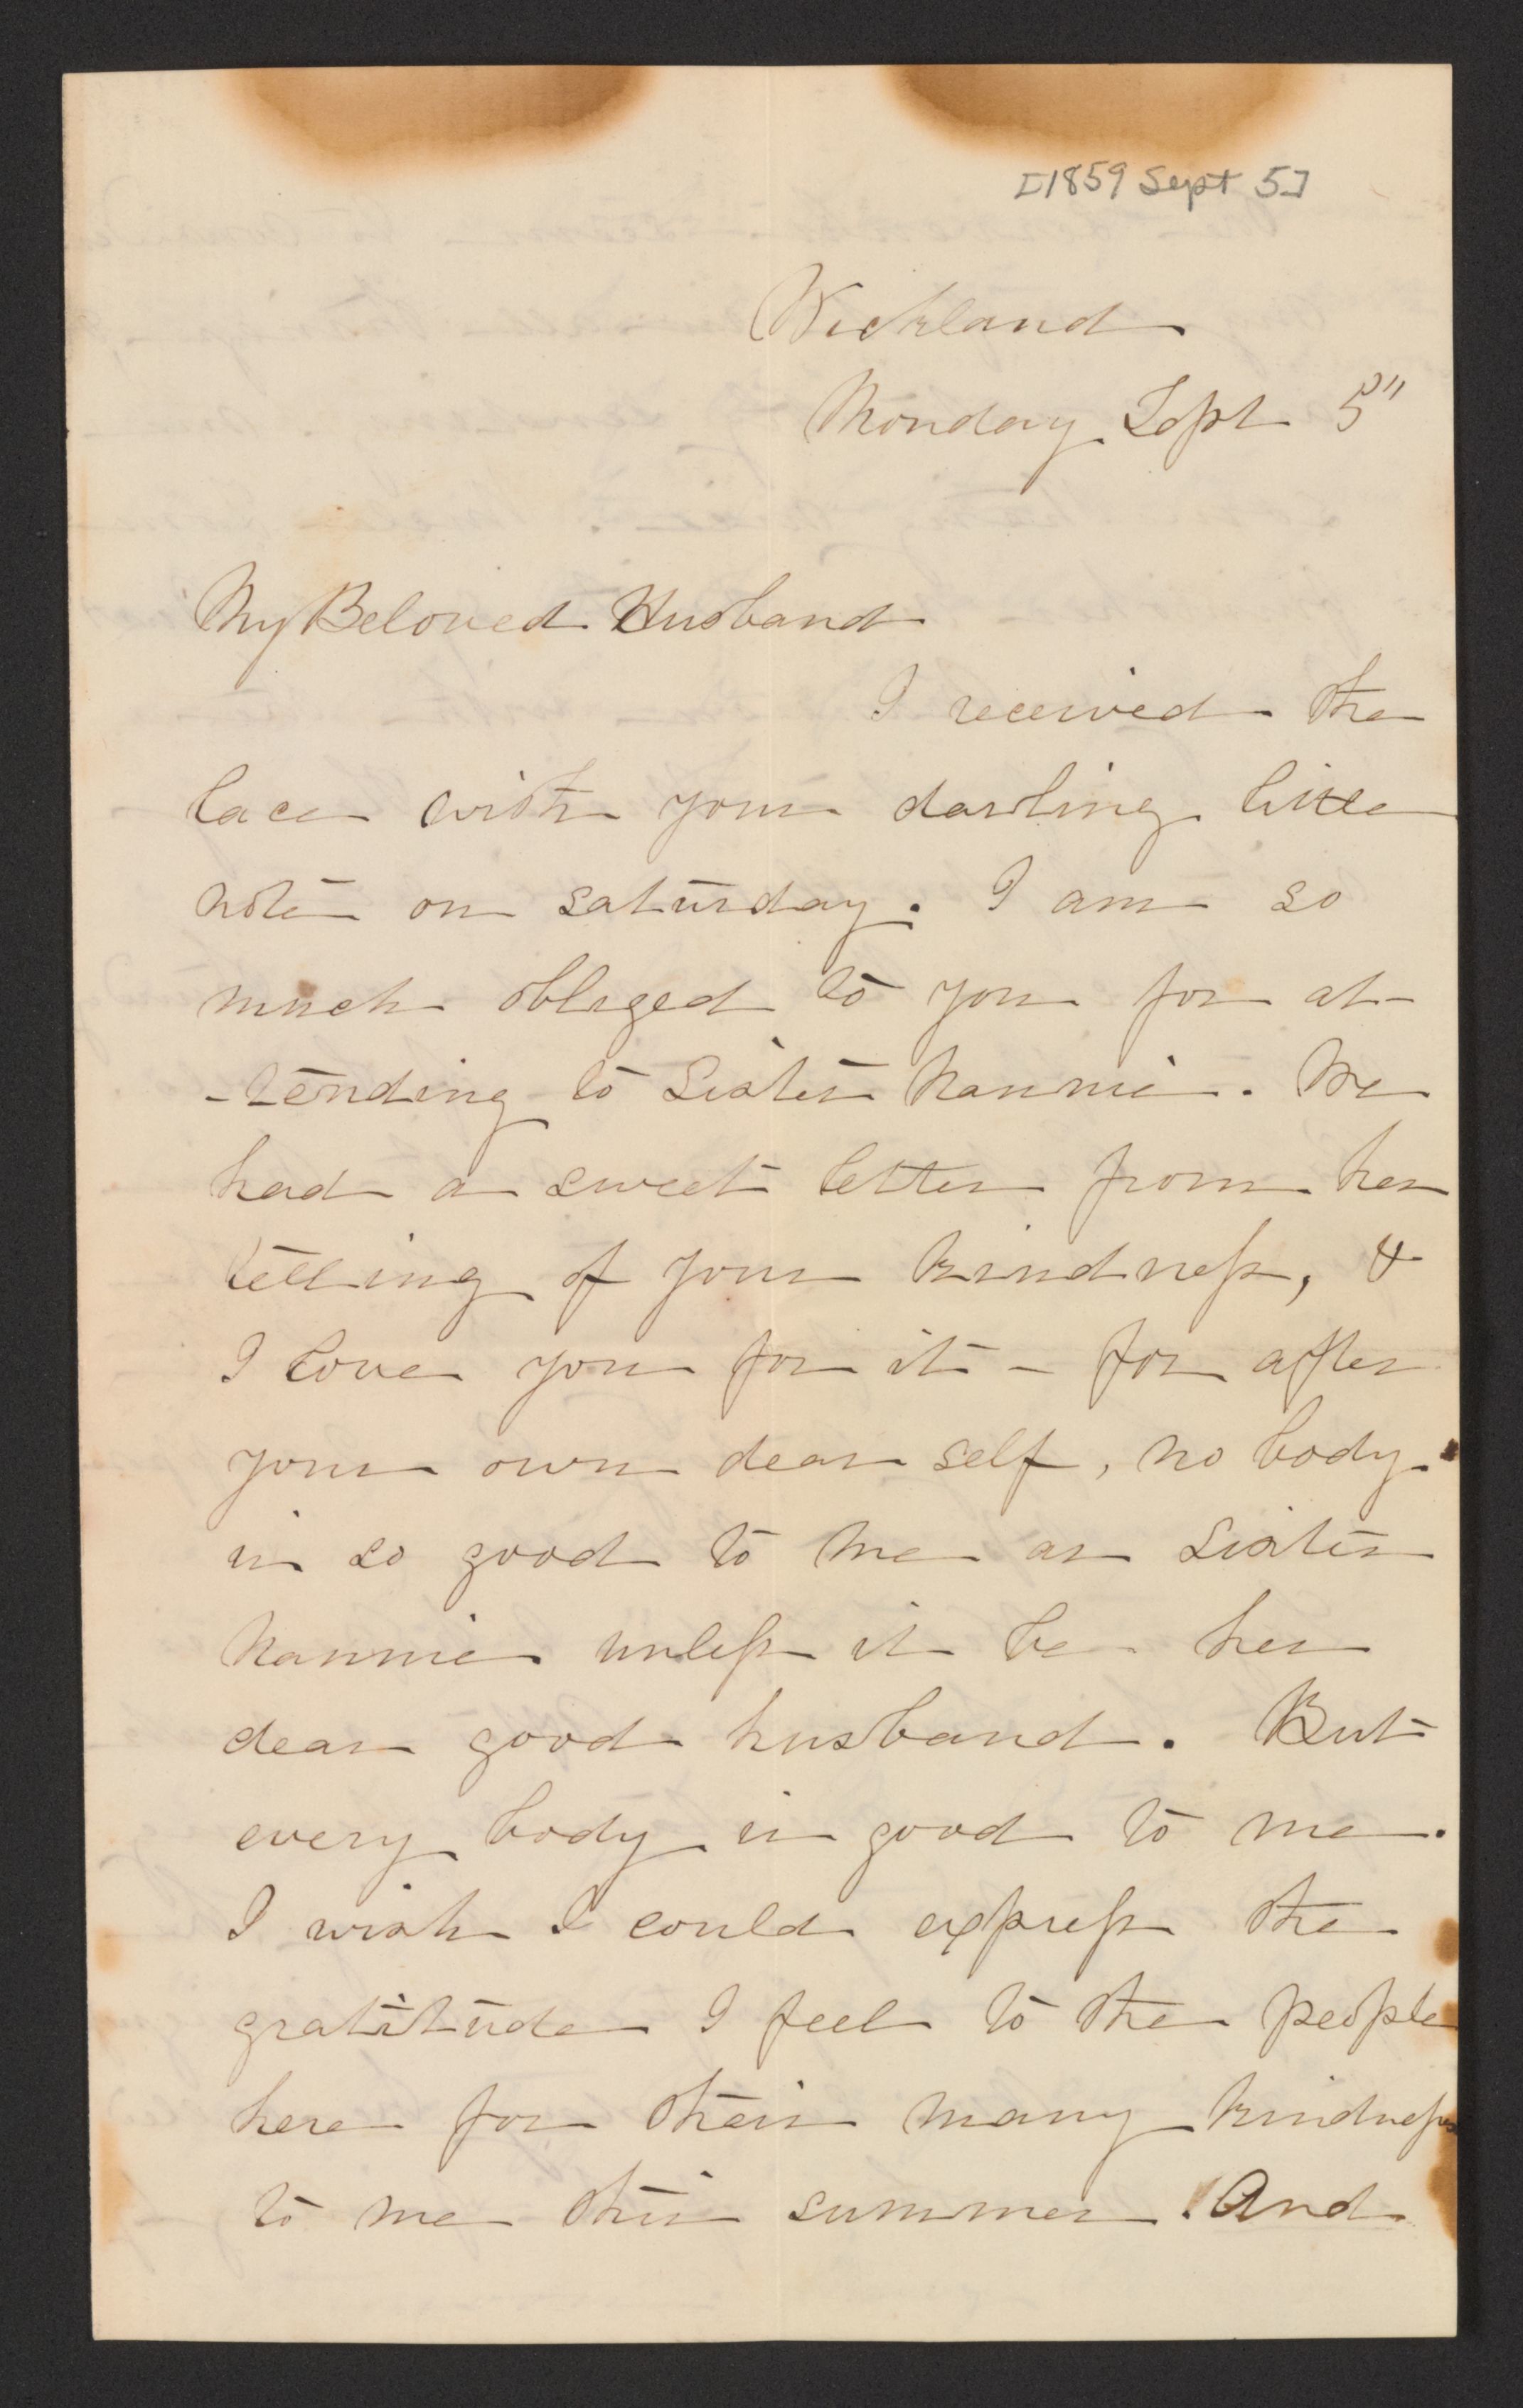 [1859 Sept 5]
Wickland
Monday Sept 5"
My Beloved Husband
I received the
lace with your darling little
note on saturday. I am so
much obliged to you for at-
-tending to Sister Nannie. We
had a sweet letter from her
telling of your kindness, &
I love you for it - for after
your own dear self, no body
is so good to me as Sister
Nannie unless it be her
dear good husband. But
every body is good to me.
I wish I could express the
gratitude I feel to the people
here for their many kindnesses
to me this summer. And